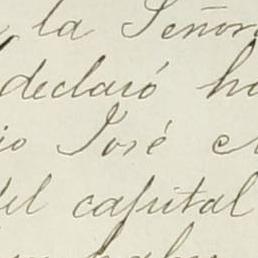 la Señora
declaró ha
io José
del capital